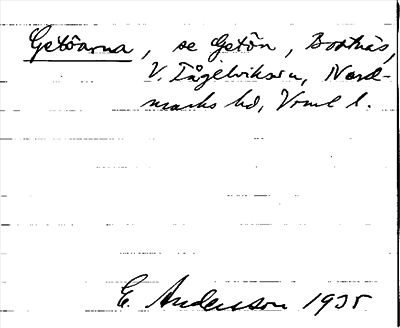 Getöarna, se Getön, Bortnäs,
V. Fågelviks sn, Nord-
marks hd, Vrml l.
E. Andersson 1935